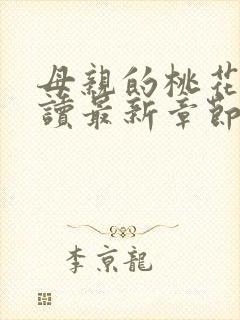 母親的桃花
讀最新章節
李京龍